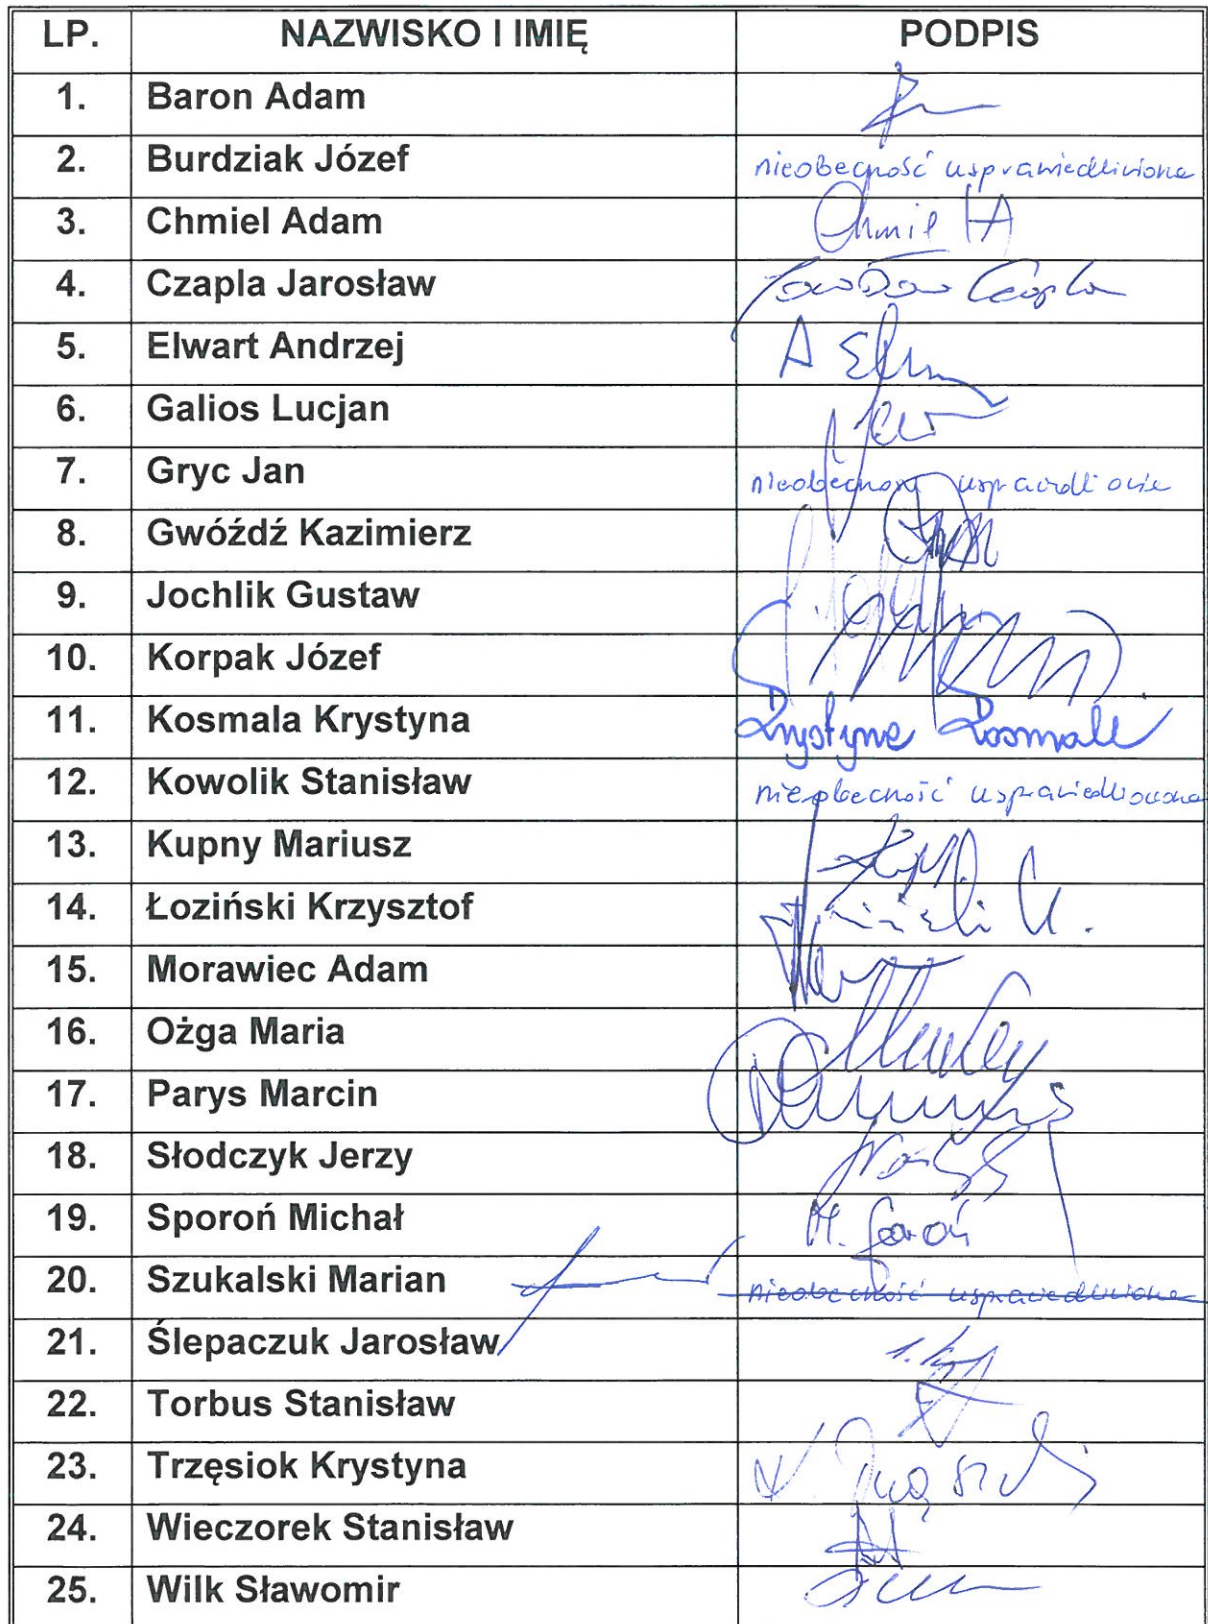 LP. NAZWISKO I IMIĘ PODPIS
1. Baron Adam
2. Burdziak Józef nieobecność usprawiedliwiona
3. Chmiel Adam Chmiel A
4. Czapla Jarosław Jarosław Czapla
5. Elwart Andrzej A
6. Galios Lucjan
7. Gryc Jan
8. Gwóźdź Kazimierz
9. Jochlik Gustaw
10. Korpak Józef
11. Kosmala Krystyna Krystyna Kosmala
12. Kowolik Stanisław nieobecność usprawiedliwiona
13. Kupny Mariusz
14. Łoziński Krzysztof
15. Morawiec Adam
16. Ożga Maria
17. Parys Marcin
18. Słodczyk Jerzy
19. Sporoń Michał M. Sporoń
20. Szukalski Marian nieobecność usprawiedliwiona
21. Ślepaczuk Jarosław
22. Torbus Stanisław
23. Trzęsiok Krystyna
24. Wieczorek Stanisław
25. Wilk Sławomir